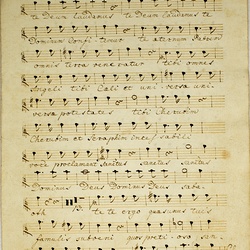 te Deum laudamus te Deum laudamus te
Dominum Confi temur te aeternum Patrem
omnis terra vene ratur tibi omnes
Angeli tibi Caeli et uni versae uni
versa potestates tibi Cherubim
Cherubim et Seraphim inces sabili
voce proclamant Sanctus sanctus sanctus
Dominus Deus Dominus Deus Saba
oth te te ergo quaesumus tuis
famulis subveni quos preti oso san